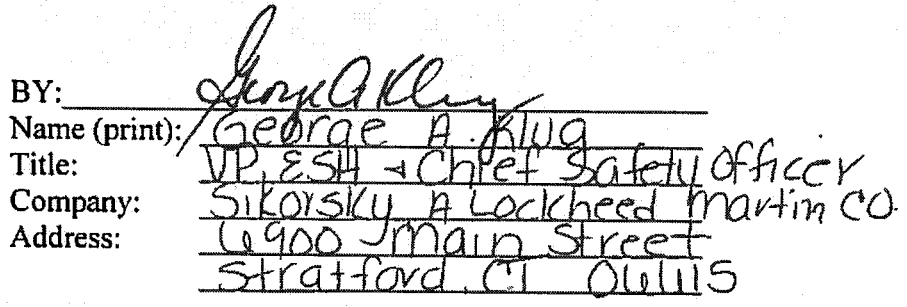 BY: George A Klug
Name (print): George A. Klug
Title: VP, ESH & Chief Safety Officer
Company: Sikorsky A Lockheed Martin CO.
Address: 6900 Main Street
Stratford, CT 06615